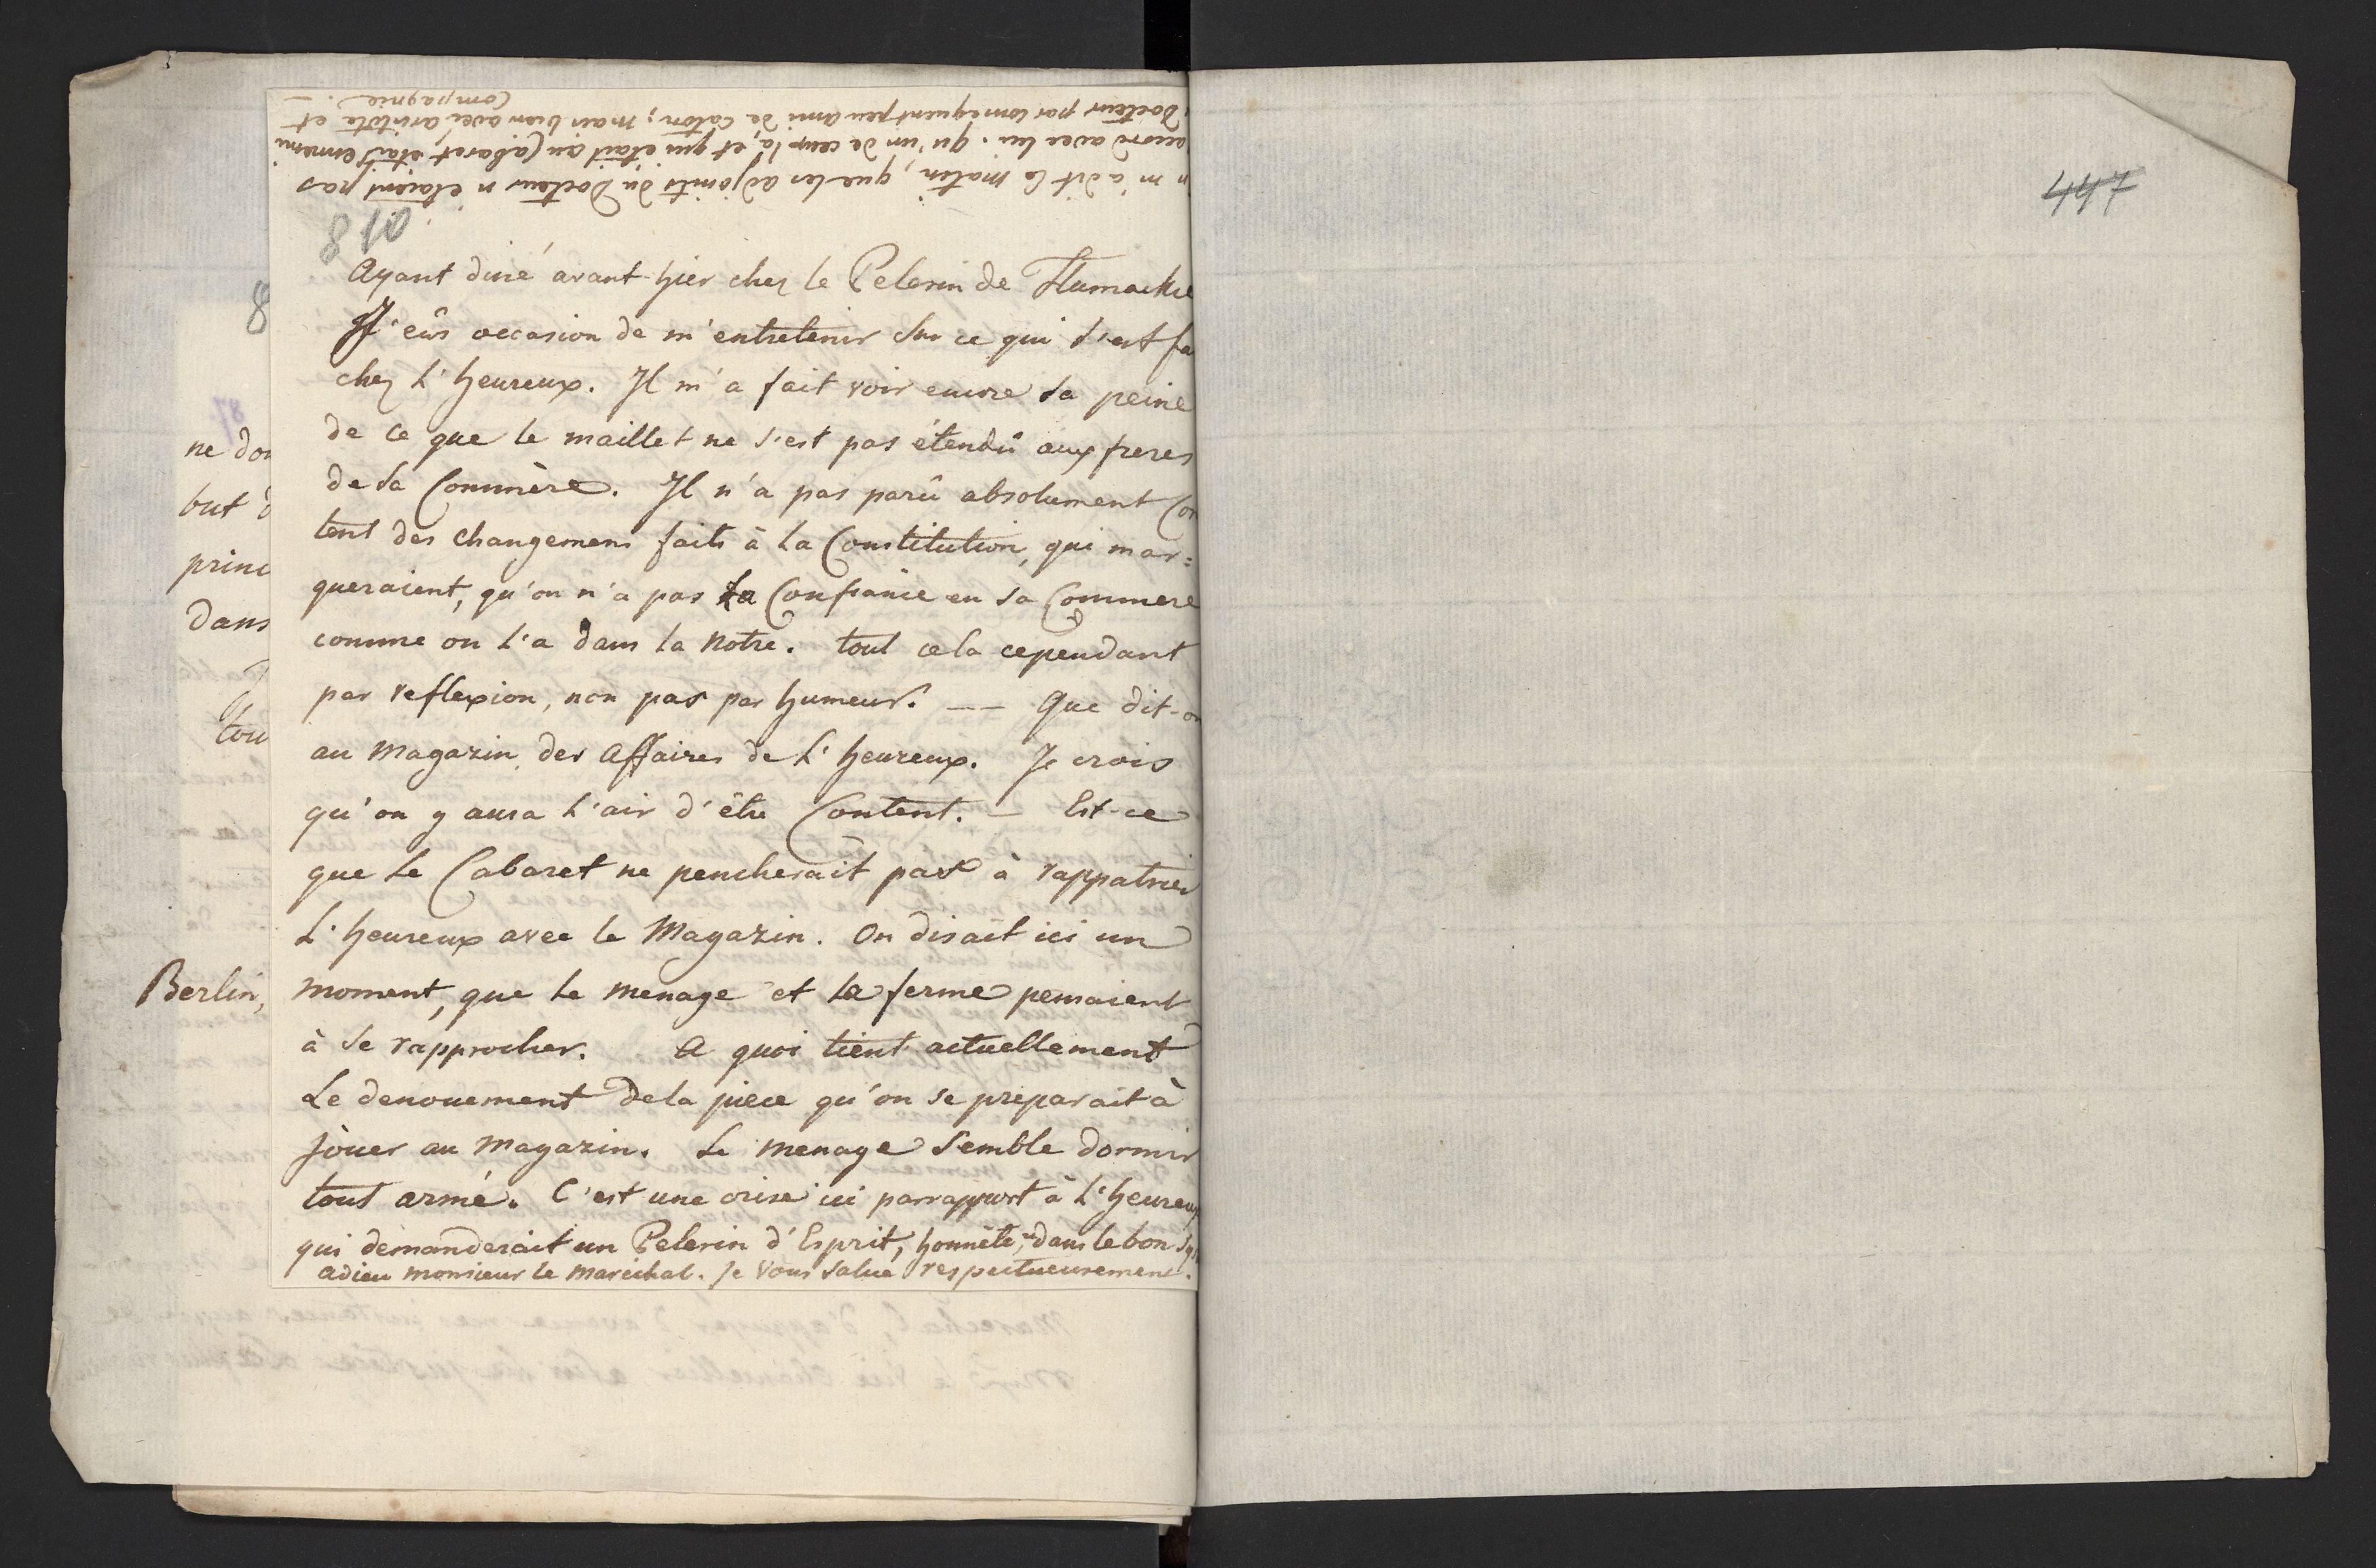 n m'a dit le matin, que les adjoints du Docteur n'étaient pas
accord avec lui. qu'un de ceux là, et qui était au Cabaret était ennemi
Docteur par consequent peu ami de Caton; mais bien avec aristote et
Compagnie. —
810
Ayant diné avant-hier chez le Pelerin de
J'eûs occasion de m'entretenir sur ce qui s'est fa
chez L'heureux. Il m'a fait voir encore sa peine
de ce que le maillet ne s'est pas étendû aux freres
de sa Commère. Il n'a pas parû absolument Con
tent des changemens faits à la Constitution, qui mar=
queraient, qu'on n'a pas la Confiance en sa Commere
comme on l'a dans la notre. tout cela cependant
par reflexion, non pas par humeur. —— Que dit-on
au Magazin des affaires de L'heureux. Je crois
qu'on y aura l'air d'être Content. — Est-ce
que le Cabaret ne pencherait pas à rappatrier
L'heureux avec le Magazin. On disait ici un
moment, que le menage et la ferme pensaient
à se rapprocher. A quoi tient actuellement
Le denouement de la piece qu'on se preparait à
joüer au Magazin. Le menage semble dormir
tout armé. C'est une crise ici parrapport à L'heureux
qui demanderait un Pelerin d'Esprit, honnête, dans le bon
adieu monsieur le marechal. Je vous salue respectueusement.
8
87
ne don
but d
princ
dans
tou
Berlin,
447